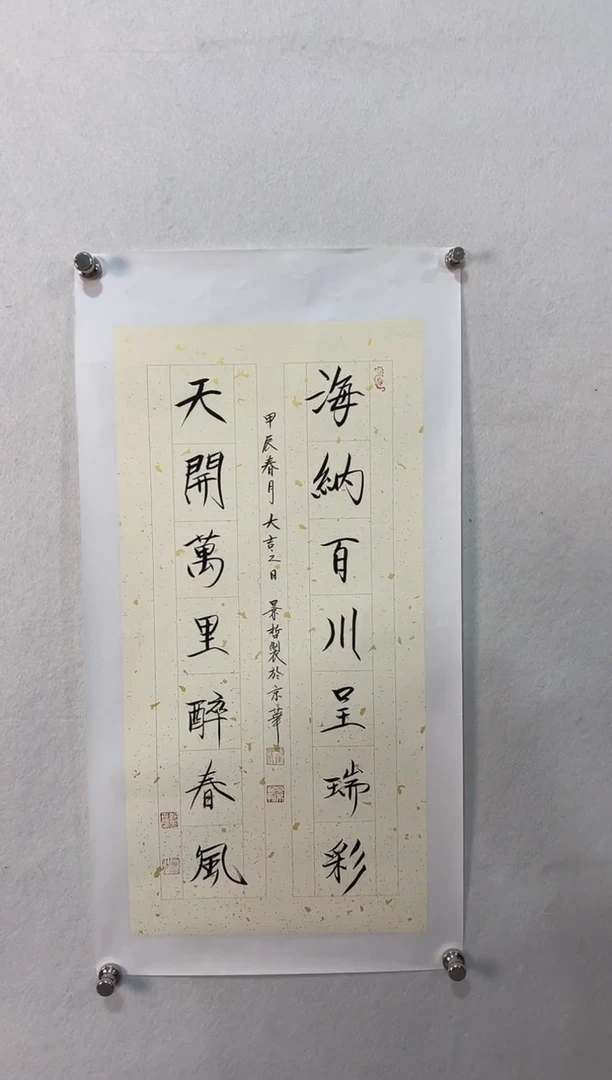 海納百川呈瑞彩
天開萬里醉春風
甲辰春月大吉之日景哲製於京華